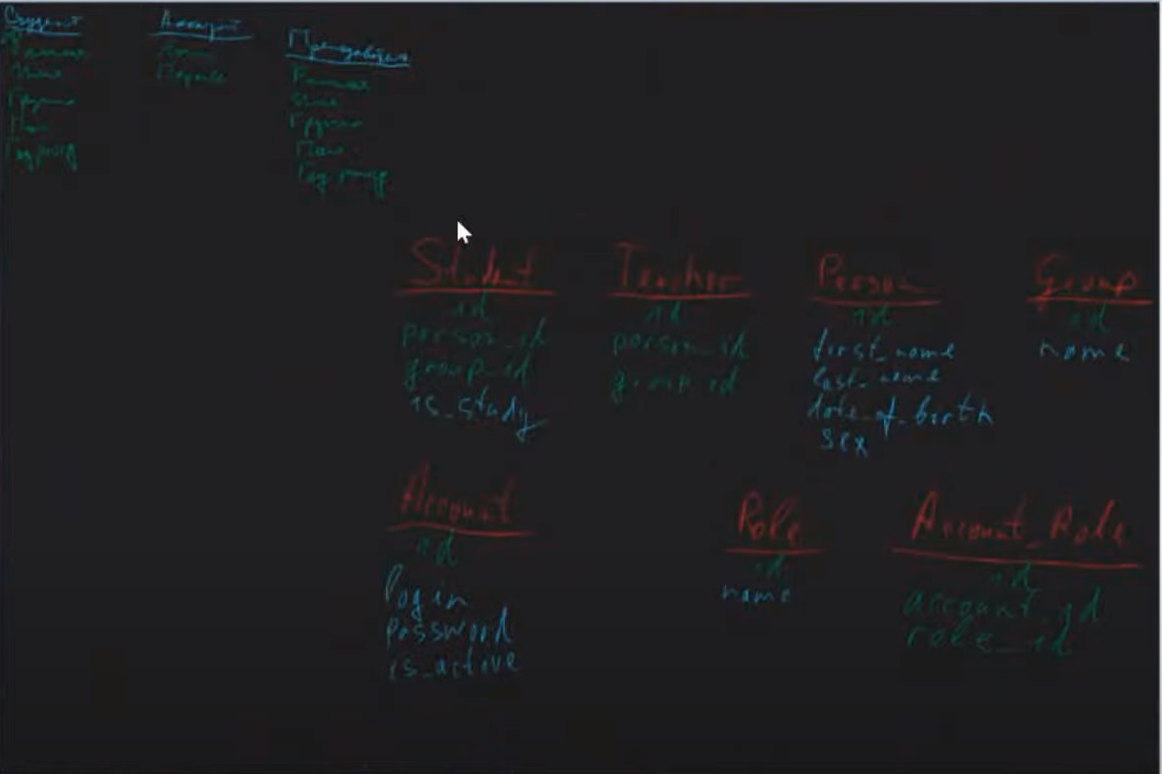 Студент
Фамилия
Имя
Группа
Пол
Год рожд
Аккаунт
Логин
Пароль
Преподаватель
Фамилия
Имя
Группа
Пол
Год рожд
Student
id
person_id
group_id
is_study
Teacher
id
person_id
group_id
Person
id
first_name
last_name
date_of_birth
sex
Group
id
name
Account
id
login
password
is_active
Role
id
name
Account_Role
id
account_id
role_id